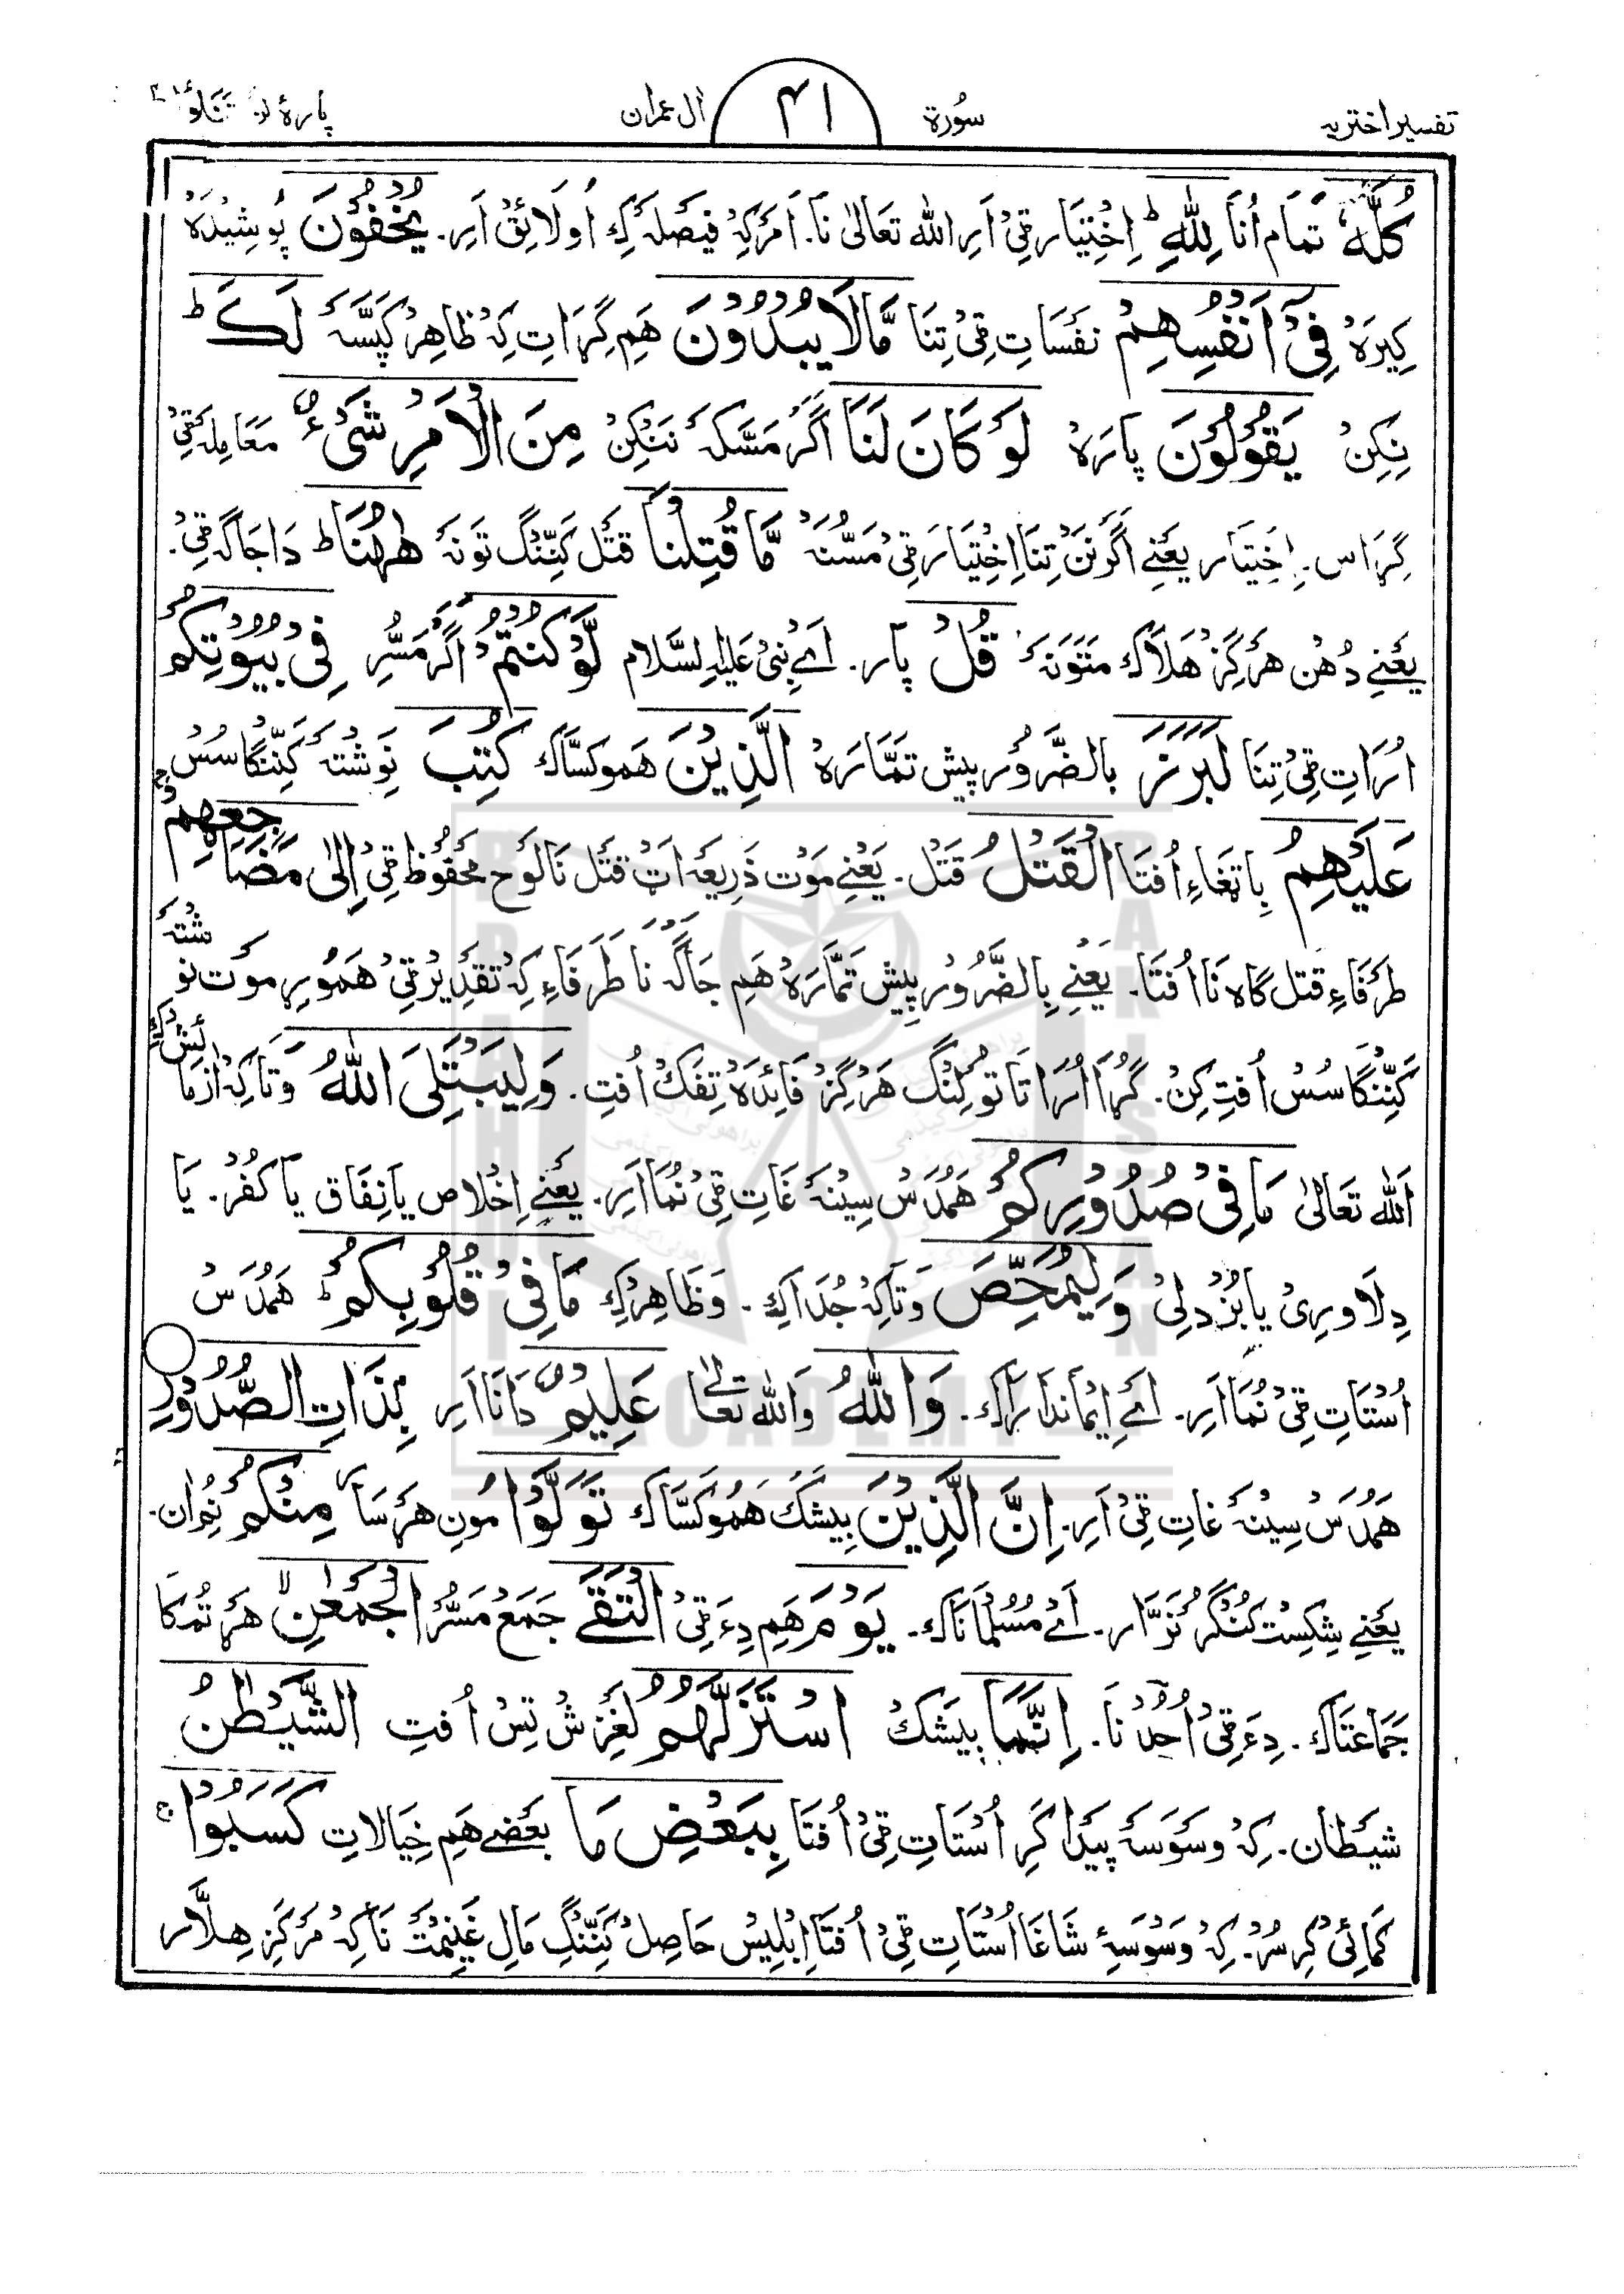 تفسیر اختریہ سُورۃ ۴۱ اٰل عمران پارۂ
کُلَّہٗ تَمَام اُنَا لِلّٰہِ ط اِخْتِیَار ٹِیْ اَرِ اللہ تَعَالٰی نَا۔ اَمَرکِہْ فَیصَلہ کِ اُو لَائِقْ اَرِ۔ یُخْفُوْنَ پُوشِیْدَہْ
کِیرَہْ فِیْٓ اَنْفُسِھِمْ نَفسَاتِ ٹِیْ تِنَا مَّا لَا یُبْدُوْنَ ھَمِ گِرَاتِ کِہْ ظَاھِرْ کَپَّسَہْ لَکَ ط
نِکِنْ یَقُوْلُوْنَ پارَہ لَوْ کَانَ لَنَا اَگَرْ مَسَّکہْ نَنَکِنْ مِنَ الْاَمْرِ شَیْءٌ مَعَامِلہ ٹِیْ
گِرَاس۔ اِخْتِیَار یَعْنِے اَگَرْ نَنْ تِنَا اِخْتِیَار ٹِیْ مَسُّنَہْ مَّا قُتِلْنَا قَتْل کَنِّنْگ تَوَنَہْ ھٰھُنَا ط دَا جَاگَہ ٹِیْ۔
یَعْنِے دُھُن ھَرْگِز ھَلَاک مَتَوَنَہْ قُلْ پار۔ اَے نَبِیْ عَلَیہِ السَّلام لَّوْ کُنْتُمْ اَگَرْ مَسُّرِ فِیْ بُیُوْتِکُمْ
اُرَاتِ ٹِیْ تِنَا لَبَرَزَ بالضَّرُور پیش تَمَّارَہْ الَّذِیْنَ ھَمو کَسَّاک کُتِبَ نَوِشْتَہْ کَنِّنْگاسُسْ
عَلَیْھِمُ بِاتَغَاءِ اُفتَا الْقَتْلُ قَتْل۔ یَعْنِے مَوْت ذَرِیعَہ اَٹْ قَتْل نَا لَوْح مَحْفُوظ ٹِیْ اِلٰی مَضَاجِعِھِمْ ج
طَرَفَاءِ قتل گاہ نَا اُفتَا۔ یَعْنِے بِالضَّرُور پیش تَمَّارَہْ ھَمِ جَاگَہ نَا طَرَفَاءِ کِہْ تَقدِیرْ ٹِیْ ھَمُوْرِ موت نوشتہ
کَنِّنْگَاسُسْ اُفتِ کِنْ۔ گُڑَا اُرَاتَا تُولِنْگ ھَرْگِز فَائِدَہ تِفَکْ اُفتِ۔ وَلِیَبْتَلِیَ اللّٰہُ وَتَاکِہْ اَزمَائِشْ کِے
اَللہ تَعَالٰی مَا فِیْ صُدُوْرِکُمْ ھَمْدَسْ سِیْنَہ غَاتِ ٹِیْ نُمَا اَرِ۔ یَعْنِے اِخْلَاص یا نِفَاق یا کُفْر۔ یَا
دِلَاورِیْ یا بُزْدِلِیْ وَلِیُمَحِّصَ وَتَاکِہْ جُدَا کِے۔ وَظَاھِرْ کِے مَا فِیْ قُلُوْبِکُمْ ط ھَمْدَسْ
اُسْتَاتِ ٹِیْ نُمَا اَرِ۔ اَے اِیْمَاندَارَاک۔ وَاللّٰہُ وَاللہ تَعَالٰے عَلِیْمٌ دَانَا اَرِ بِذَاتِ الصُّدُوْرِ
ھَمْدَسْ سِیْنَہ غَاتِ ٹِیْ اَرِ۔ اِنَّ الَّذِیْنَ بِیشَکْ ھَمُو کَسَّاک تَوَلَّوْا مُونِ ھَرْسَار مِنْکُمْ نُمْ اِن۔
یَعْنِے شِکَسْت کُنْگ نَرَّار۔ اَے مُسُلمَانَاک۔ یَوْمَ ھَمِ دِے ٹِیْ الْتَقَے جَمَع مَسُّرْ الْجَمْعٰنِ لا ھَرْ تُمْکَا
جَمَاعَتَاک۔ دِے ٹِیْ اُحُدْ نَا۔ اِنَّمَا بیشَکْ اسْتَزَلَّھُمُ لَغزِشْ تِسْ اُفتِ الشَّیْطٰنُ
شَیْطَان۔ کِہْ وَسوَسَہ پَیدَا کَرِ اُسْتَاتِ ٹِیْ اُفتَا بِبَعْضِ مَا بَعْضے ھَمِ خِیَالَاتِ کَسَبُوْا ج
کَمَائِیْ کِرِسُرْ۔ کِہْ وَسْوَسَہْ شَاغَا اُسْتَاتِ ٹِیْ اُفتَا اِبْلِیسْ حَاصِلْ کَنِّنْگِ مَالِ غَنِیْمَتْ نَا کِہْ مَرْکَزِ ھِلَّار